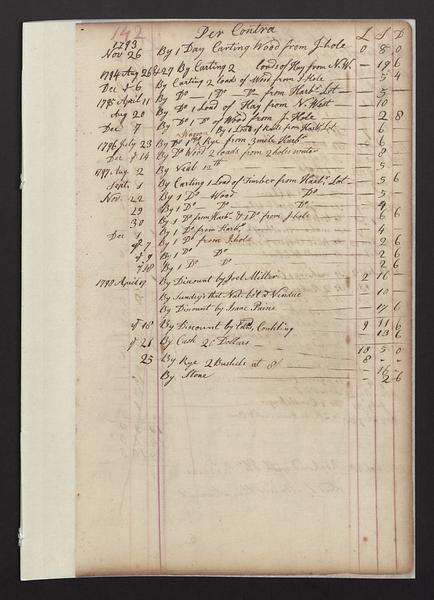 142
Per Contra L S D
1793
Nov 26 By 1 Day Carting Wood from J-hole 0 8 0
1794 Aug 26 & 27 By Carting 2 loads of Hay from N.W. — 19 6
Dec 6 By Carting 2 load of Wood from J.Hole 5 4
1795 April 11 By Do 1 Do Do from Harbr Lot — 5 —
Aug 20 By Do 1 Load of Hay from N. West — 10
Dec 7 By 1 Do of Wood from J. Hole 2 8
Waggon By 1 Load of from Harbr Lot 6
1796 July 23 By Do Rye from 3 mile Harbr 6
Dec 14 By Do Wood 2 loads from 2 holes water 8
1797 Aug 2 By Veal 12 lb
Sept 1 By Carting 1 Load of Timber from Harbr Lot 5 6
Nov. 22 By 1 Do Wood Do — 5 —
29 By 1 Do Do Do 4
30 By 1 Do from Harbr & 1 Do from J.hole 6 6
Dec 1 By 1 Do from Harbr 4
7 By 1 Do from J.hole 2 6
9 By 1 Do Do 2 6
18 By 1 Do Do 2 6
1798 April 17 By Discount by Joel Miller 2 16
By Sundrys that Nat. bot at Vendue 10
By Discount by Isaac Paine 17 6
18 By Discount by Edwd Conkling 9 11 6
21 By Cash 20 Dollars 13 6
18 5 0
25 By Rye 2 Bushels at 8/ 8 — —
— 16 —
By Stone — 2 6